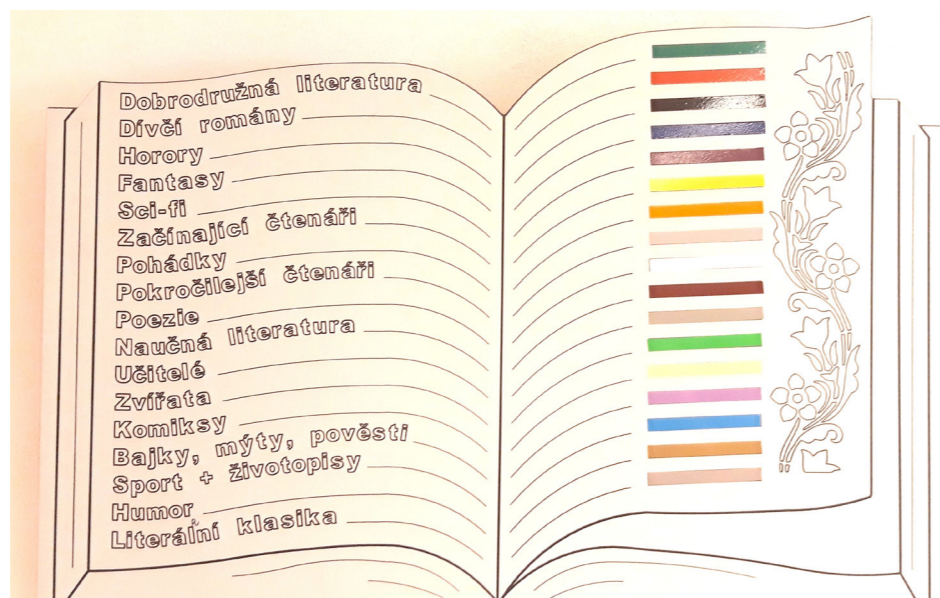 Dobrodružná literatura
Dívčí romány
Horory
Fantasy
Sci-fi
Začínající čtenáři
Pohádky
Pokročilejší čtenáři
Poezie
Naučná literatura
Učitelé
Zvířata
Komiksy
Bajky, mýty, pověsti
Sport + životopisy
Humor
Literální klasika